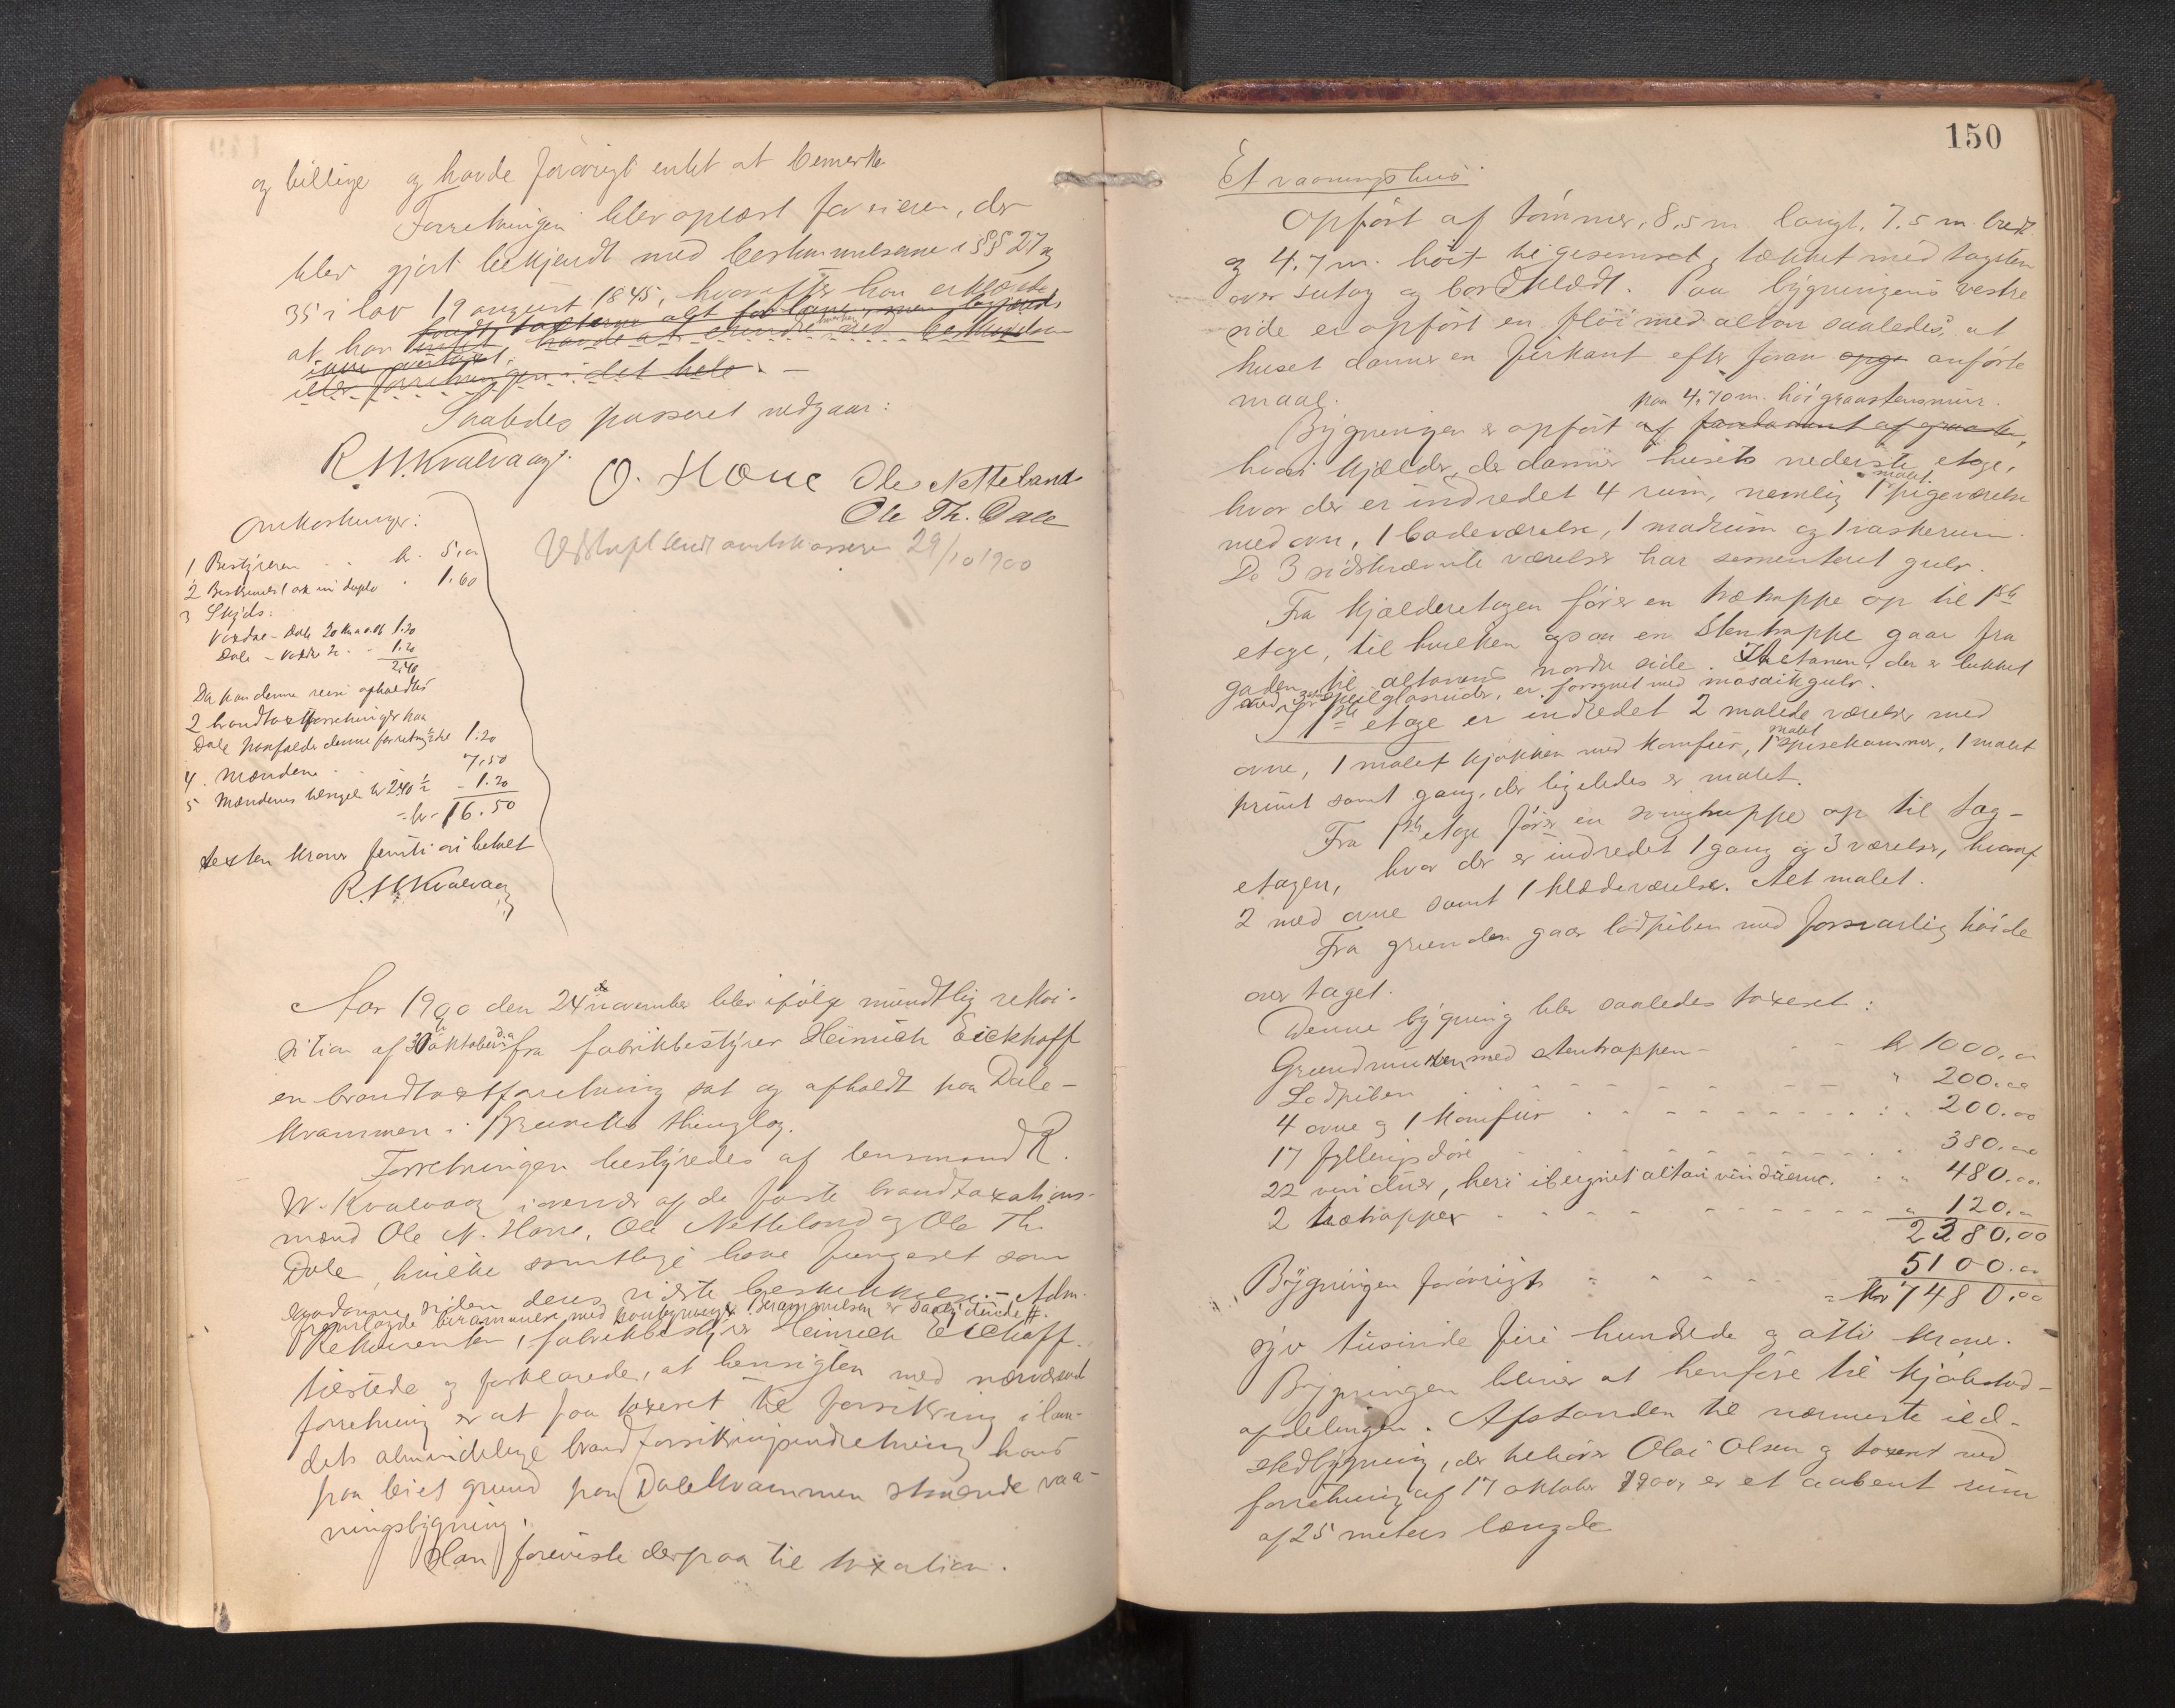 og billige og havde forøvrigt intet at bemerke.
Forretningen blev oplæst for eieren, der
blev gjort bekjendt med bestemmelserne i §§ 27 og
35 i lov 19 august 1845, hvorefter han erklærte
at han
intet, havde at erindre hverken ved beskrivelsen
eller forretningen i det hele. —
Saaledes passeret vedgaar:
R. W. Kvalvaag. O. Hove Ole Netteland
Ole Th. Dale
Udskrift sendt amtskasserer 29/10 1900
Omkostninger:
1 Bestyreren . . kr. 5.00
2 Beskrivels ark in duplo . 1.60
3 Skyds:
Dale 20 1.20
Dale — 1.20
2.40
Da paa denne reise afholdtes
2 brandtaxtforretninger paa
Dale paafalder denne forretning ½ del 1.20
4. Mændene . . 7.50
5 Mændenes kr 2.40 ½ - 1.20
- kr - 16.50
sexten kroner femti øre betalt
R. W. Kvalvaag
Aar 1900 den 24de november blev ifølge mundtlig rekvi-
sition af 30 oktober fra fabrikbestyrer Heinrich Eickhoff
en brandtaxtforretning sat og afholdt paa Dale-
kvammen i Bruviks thinglag.
Forretningen bestyredes af lensmand R.
W. Kvalvaag i nærvær af de faste brandtaxations-
mænd Ole N. Hove, Ole Netteland og Ole Th.
Dale, hvilke samtlige have fungeret som
saadanne siden deres sidste beskikkelse. — Adm.
fremlagde berammelse med paategning. Berammelsen er saalydende #.
Rekvirenten, fabrikbestyrer Heinrich Eickhoff
tilstede og forklarede, at hensigten med nærværende
forretning er at faa taxeret til forsikring i lan-
dets almindelige brandforsikringsindretning hans
paa leiet grund paa Dalekvammen staaende vaa-
ningsbygning.
Han foreviste derpaa til taxation.
150
Et vaaningshus
Opført af tømmer, 8,5 m. langt, 7.5 m. bredt
og 4.7 m. høit til gesimset, tækket med tagsten
over sutag og bordklædt. Paa bygningens vestre
side er opført en fløi med altan saaledes, at
huset danner en firkant efter foran opgi anførte
maal. paa 4,70 m. høi graastensmur.
Bygningen er opført af fundament af graasten,
hvori kjælder, der danner husets nederste etage,
hvor der er indredet 4 rum, nemlig 1 malt pigeværelse
med ovn, 1 badeværelse, 1 madrum og 1 vaskerum.
De 3 sidstnævnte værelser har sementeret gulv.
Fra kjælderetagen fører en trætrappe op til 1ste
etage, til hvilken ogsaa en stentrappe gaar fra
gaden til altanens nordre side. Altanen, der er lukket
med speilglasruder, er forsynet med mosaikgulv.
I 1ste etage er indredet 2 malede værelser med
ovne, 1 malet kjøkken med komfur, 1 malet spisekammer, 1 malet
priuet samt gang, der ligeledes er malet.
Fra 1ste etage fører en svingtrappe op til tag-
etagen, hvor der er indredet 1 gang og 3 værelser, hvoraf
2 med ovne samt 1 klædeværelse. Alt malet.
Fra grunden gaar lodpiben med forsvarlig høide
over taget.
Denne bygning blev saaledes taxeret:
Grundmuren med stentrappen - - - kr 1000.00
Lodpiben . . . " 200.00
4 ovne og 1 komfur . . . " 200.00
17 fyllingsdøre . . . 380.00
22 vinduer, heri iberegnet altanvinduerne. : " 480.00
2 trætrapper . . . " 120.00
2380.00
Bygningen forøvrigt " . . . 5100.00
= kr 7480.00
syv tusinde fire hundrede og otti kroner.
Bygningen bliver at henføre til kjøbstad-
afdelingen. Afstanden til nærmeste ild-
stedbygning, der tilhører Olai Olsen og taxeret ved
forretning af 17 oktober 1900, er et aabent rum
af 25 meters længde